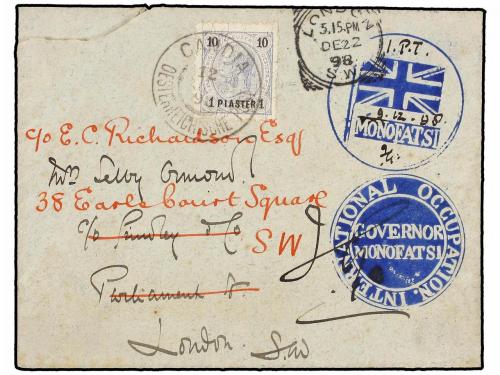 10 10
1 PIASTER 1
CANDIA
12
OESTERREICHISCHE
LONDON
3.15.PM
DE22
98
S.W
I.P.T.
9.12.98
MONOFATSI
INTERNATIONAL OCCUPATION.
GOVERNOR
MONOFATSI
c/o E. C. Richardson Esqr
Mrs Selby Ormond
38 Earls Court Square
S W
Parliament St
London. S.W